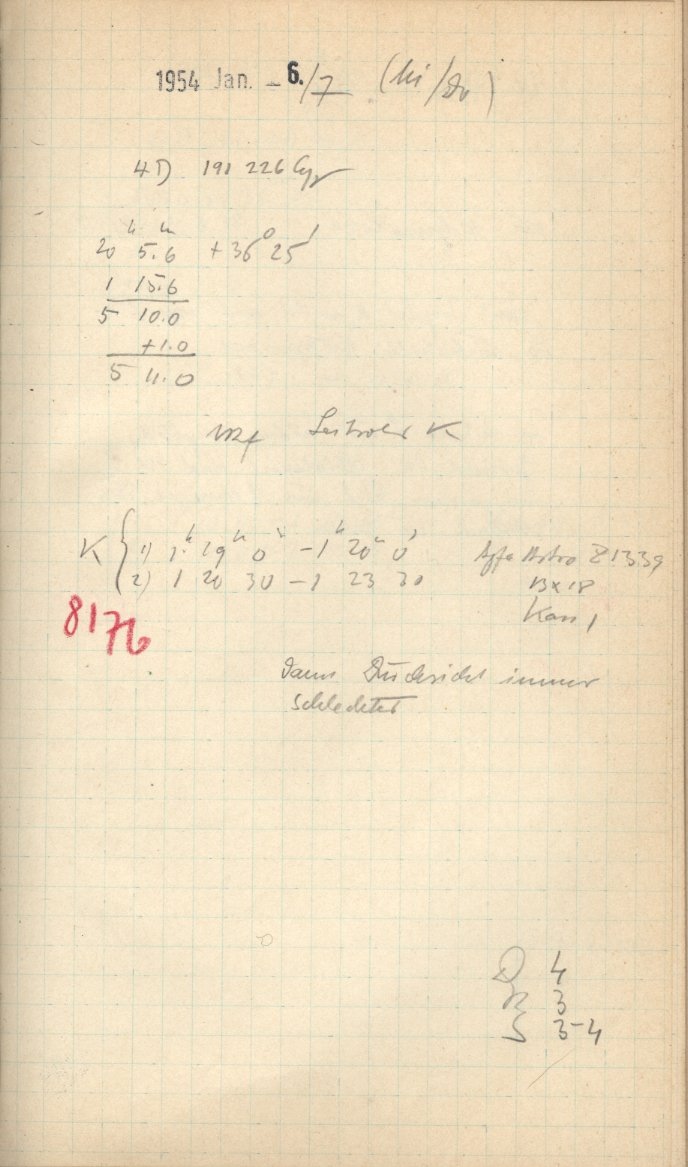 1954 Jan. – 6./7 (Mi/Do)
4D 191 226 Cyg
20ʰ 5.6ᵐ +36° 25'
1 15.6
5 10.0
+1.0
5 11.0
K
K { 1) 1ʰ 19ᵐ 0ˢ – 1ʰ 20ᵐ 0ˢ Agfa Astro Z 1339
2) 1 20 30 – 1 23 30 13 x 18
8176 Kass 1
Dann Durchsicht immer
schlechter
D 4
R 3
S 3-4